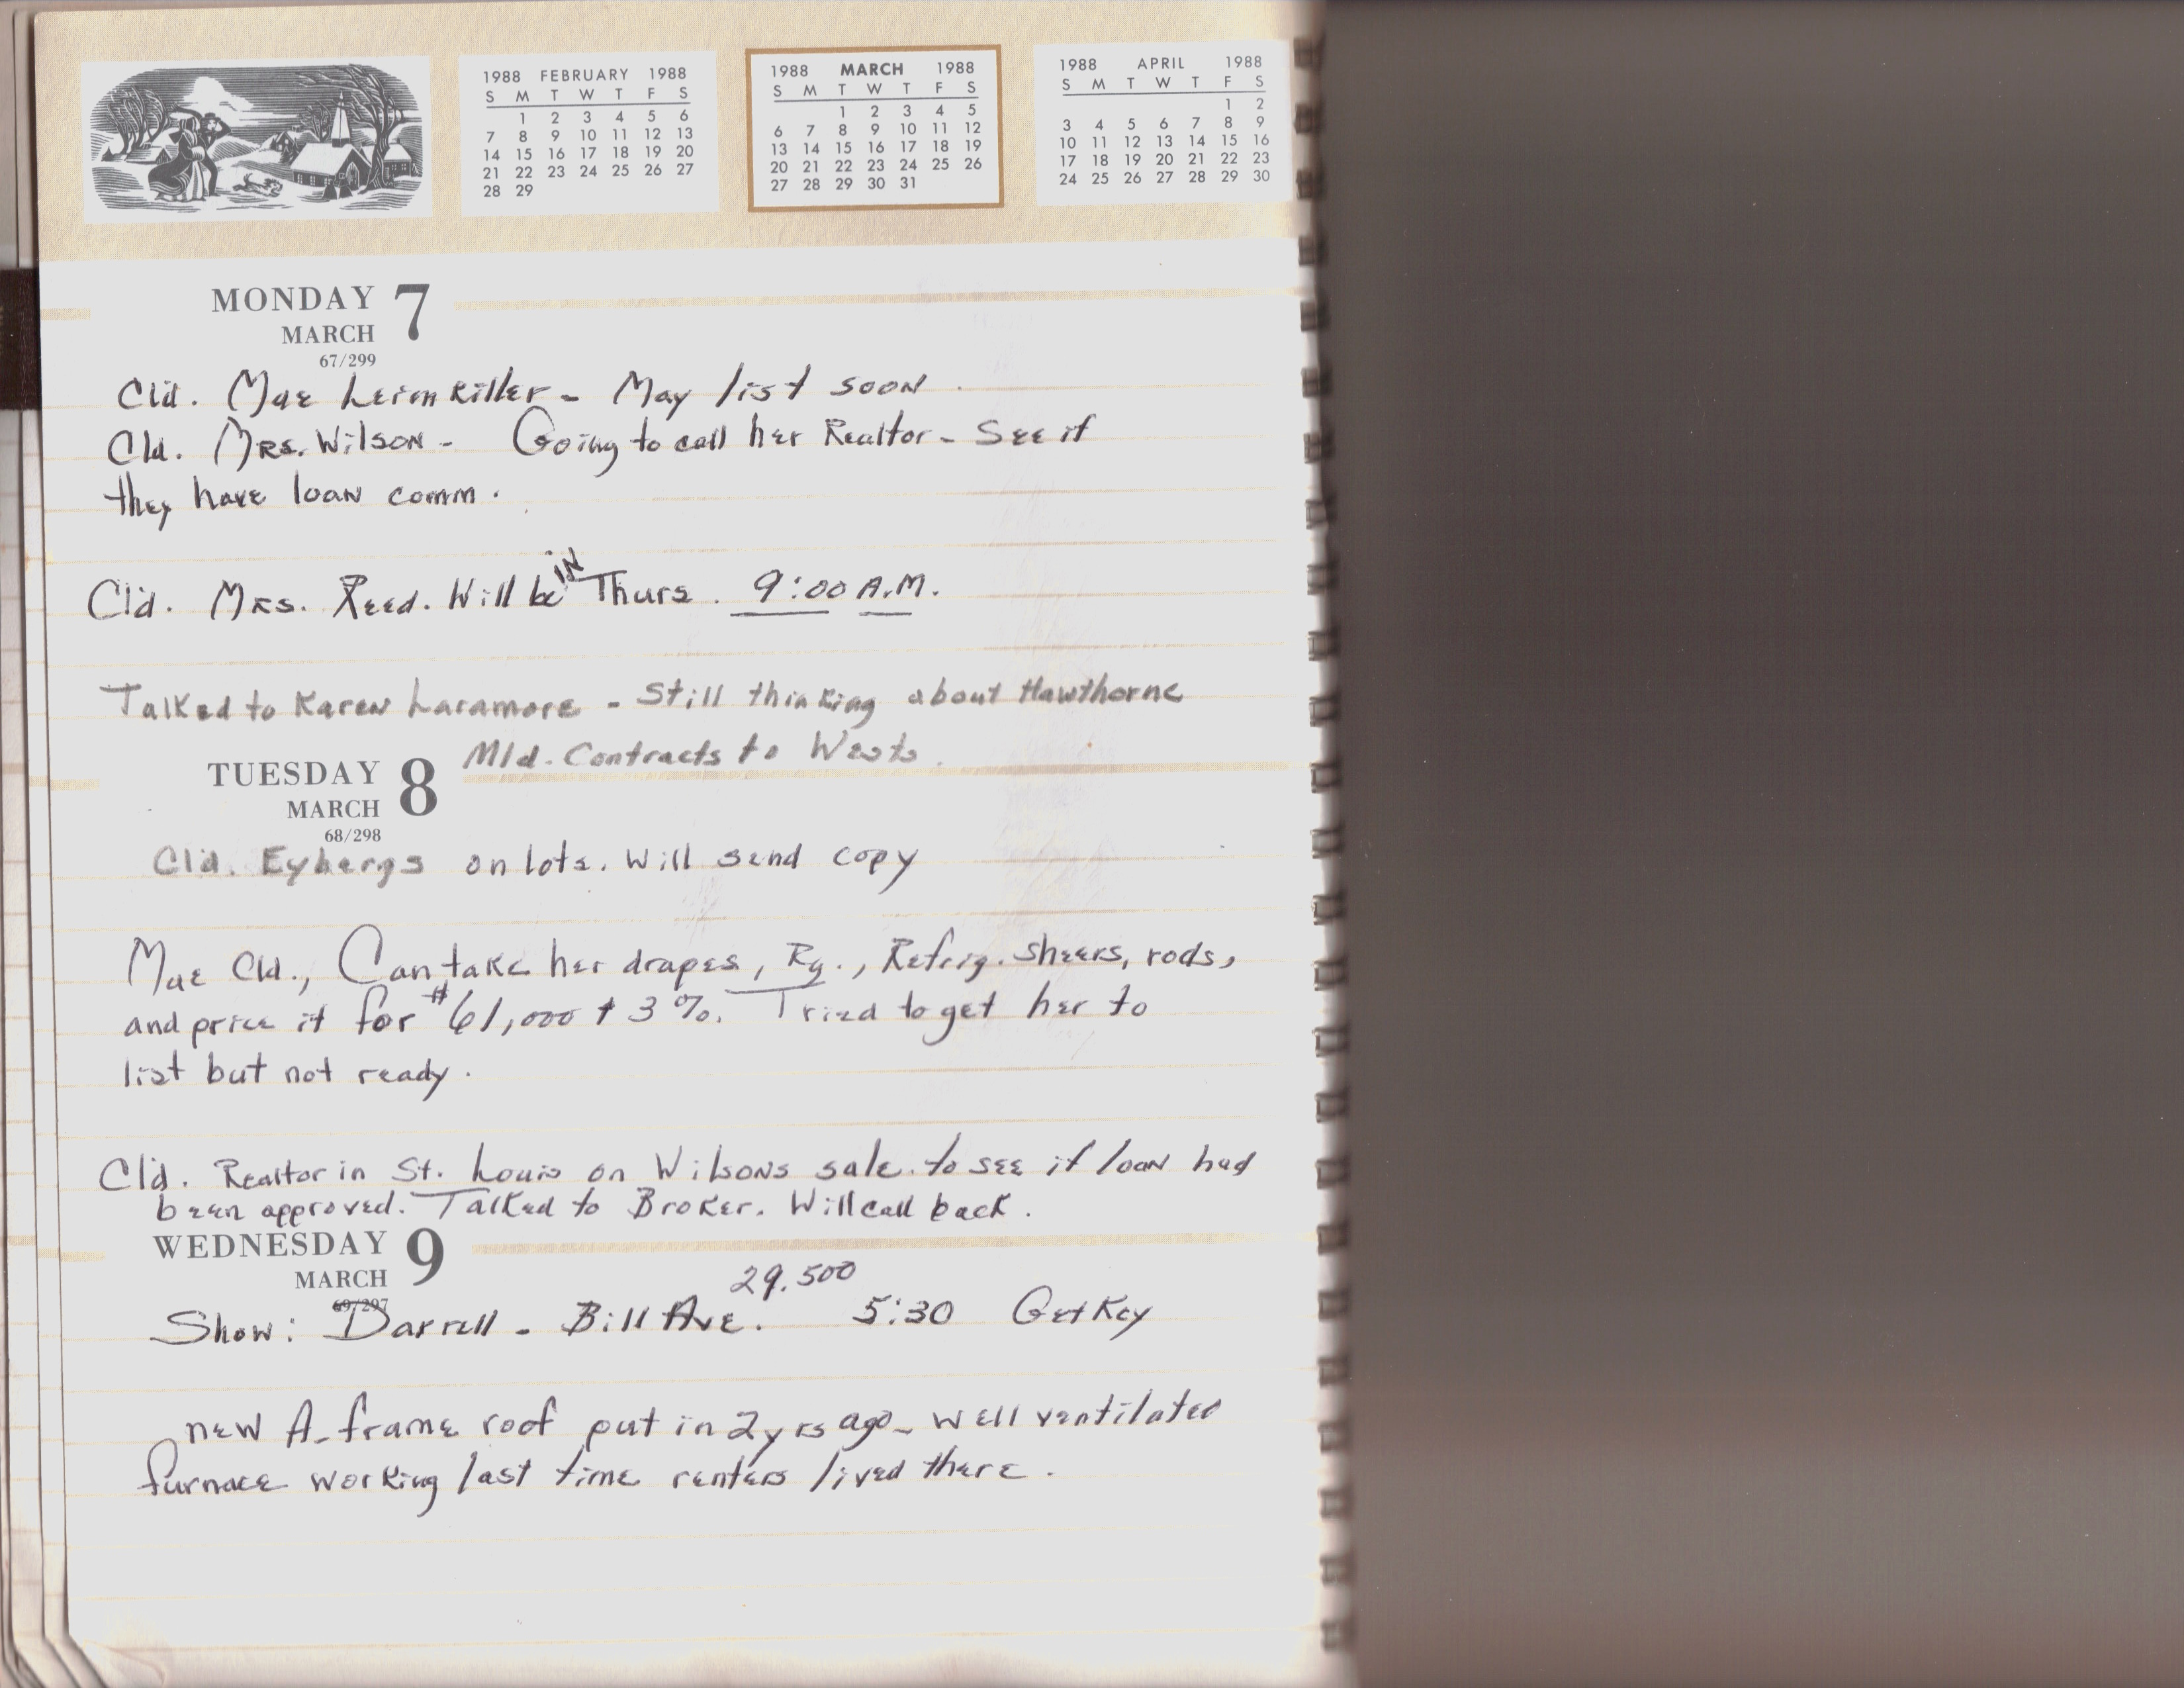 1988 FEBRUARY 1988
S M T W T F S
1 2 3 4 5 6
7 8 9 10 11 12 13
14 15 16 17 18 19 20
21 22 23 24 25 26 27
28 29
1988 MARCH 1988
S M T W T F S
1 2 3 4 5
6 7 8 9 10 11 12
13 14 15 16 17 18 19
20 21 22 23 24 25 26
27 28 29 30 31
1988 APRIL 1988
S M T W T F S
1 2
3 4 5 6 7 8 9
10 11 12 13 14 15 16
17 18 19 20 21 22 23
24 25 26 27 28 29 30
MONDAY 7
MARCH
67/299
Cld. Mae Leimkiller - May list soon.
Cld. Mrs. Wilson - Going to call her Realtor - See if
they have loan comm.
Cld. Mrs. Reed. Will be IN Thurs. 9:00 A.M.
Talked to Karen Laramore - Still thinking about Hawthorne
Mld. Contracts to Wests.
TUESDAY 8
MARCH
68/298
Cld. Eybergs on lots. Will send copy
Mae Cld., Can take her drapes, Rg., Refrig. sheers, rods,
and price it for $61,000 + 3%. Tried to get her to
list but not ready.
Cld. Realtor in St. Louis on Wilsons sale. to see if loan had
been approved. Talked to Broker. Will call back.
WEDNESDAY 9
MARCH
69/297
29,500
Show: Darrell - Bill Ave. 5:30 Get Key
new A-frame roof put in 2 yrs ago - well ventilated
furnace working last time renters lived there.